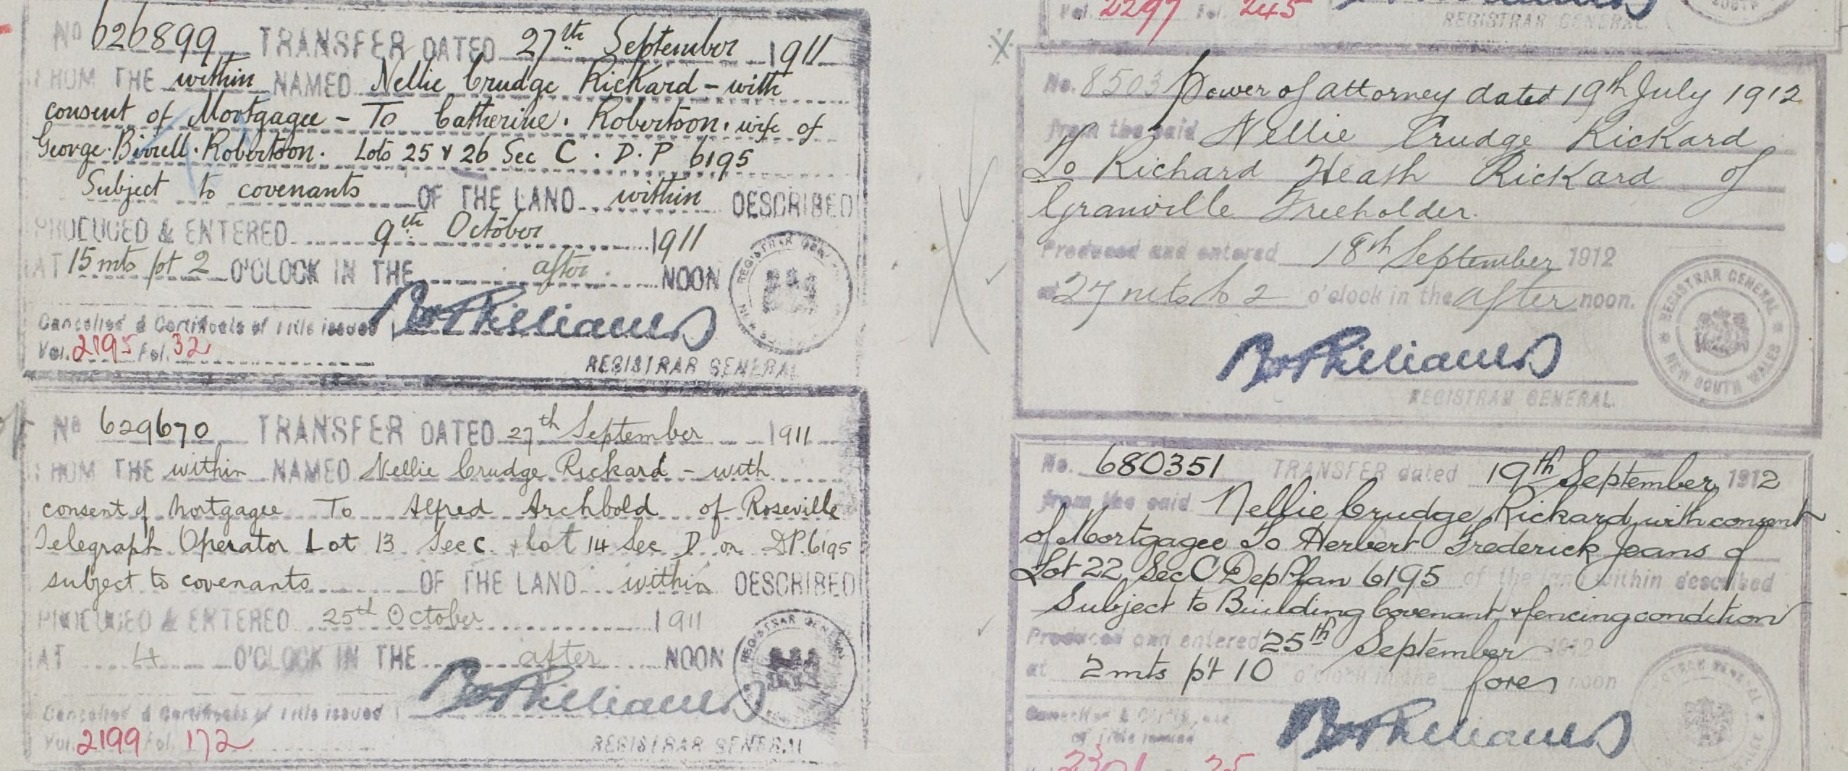 No 626899 TRANSFER DATED 27th September 1911
FROM THE within NAMED Nellie Crudge Rickard - with
consent of Mortgagee - To Catherine Robertson wife of
George Birrell Robertson. Lots 25 & 26 Sec C. D. P 6195
Subject to covenants OF THE LAND within DESCRIBED
PRODUCED & ENTERED 9th October 1911
AT 15 mts pt 2 O'CLOCK IN THE after NOON
Cancelled & Certificate of Title issued
Vol. 2195 Fol. 32
REGISTRAR GENERAL
No 629670 TRANSFER DATED 27th September 1911
FROM THE within NAMED Nellie Crudge Rickard - with
consent of Mortgagee To Alfred Archbold of Roseville
Telegraph Operator Lot 13 Sec C & lot 14 Sec D on DP 6195
subject to covenants OF THE LAND within DESCRIBED
PRODUCED & ENTERED 25th October 1911
AT 4 O'CLOCK IN THE after NOON
Cancelled & Certificate of Title issued
Vol. 2199 Fol. 172
REGISTRAR GENERAL
Vol. 2297 Fol. 245
REGISTRAR GENERAL
No. 8503 Power of attorney dated 19th July 1912
from the said Nellie Crudge Rickard
To Richard Heath Rickard of
Granville Freeholder.
Produced and entered 18th September 1912
at 27 mts to 2 o'clock in the after noon.
REGISTRAR GENERAL
REGISTRAR GENERAL
NEW SOUTH WALES
No. 680351 TRANSFER dated 19th September 1912
from the said Nellie Crudge Rickard with consent
of Mortgagee To Herbert Frederick Jeans of
Lot 22 Sec C Dep Plan 6195 of the land within described
Subject to Building Covenant & fencing condition
Produced and entered 25th September 1912
at 2 mts pt 10 o'clock in the fore noon